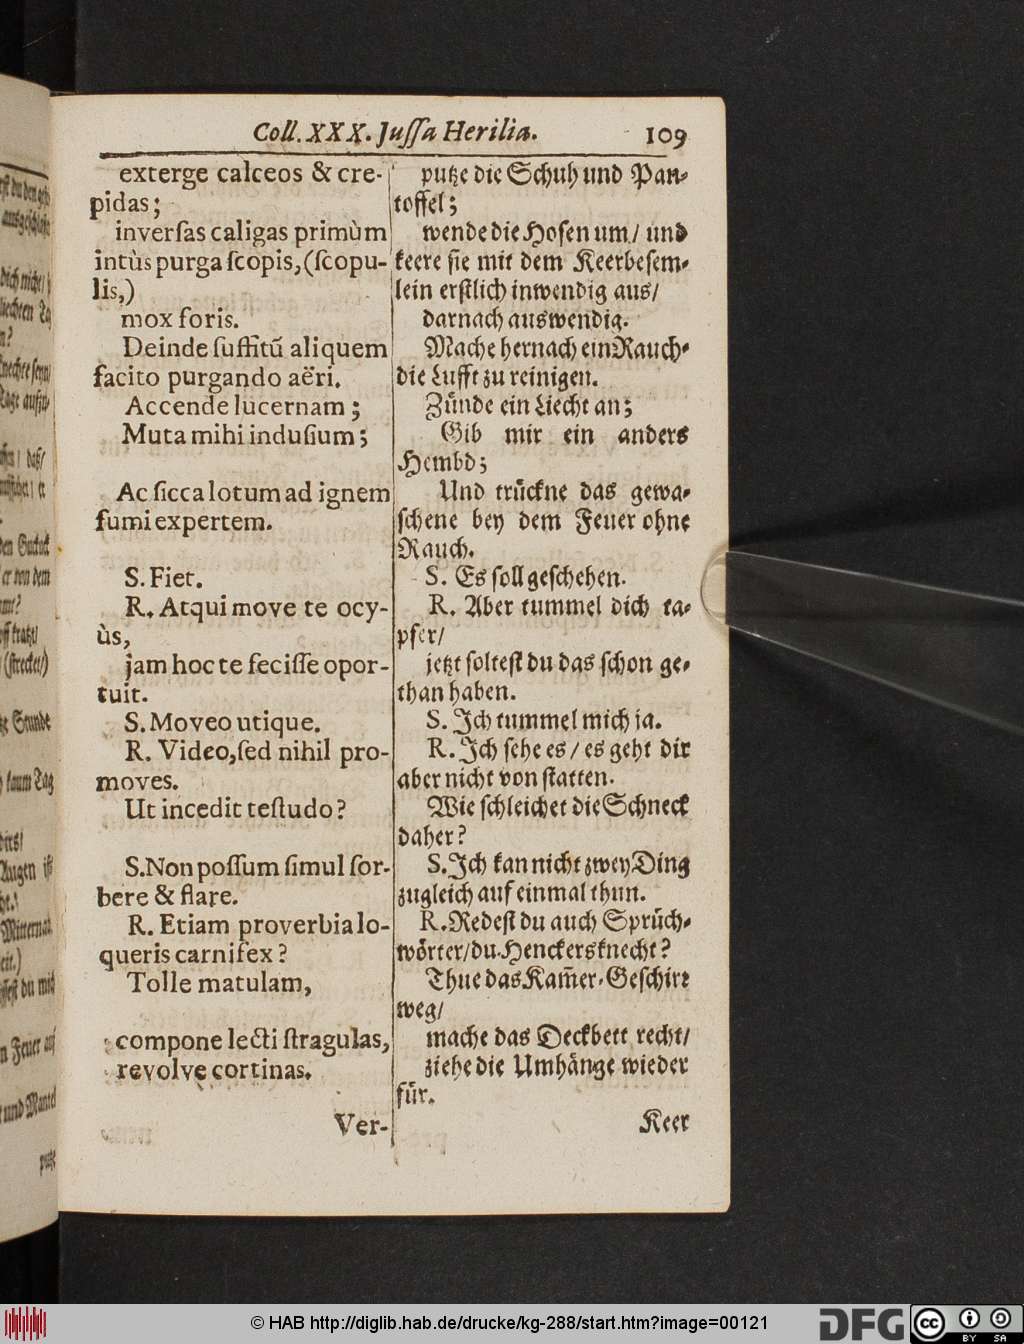 Coll. XXX. Juſſa Herilia. 109
exterge calceos & cre-
pidas;
inverſas caligas primùm
intùs purga ſcopis, (ſcopu-
lis,)
mox foris.
Deinde ſuffitū aliquem
facito purgando aëri.
Accende lucernam;
Muta mihi induſium;
Ac ſicca lotum ad ignem
fumi expertem.
S. Fiet.
R. Atqui move te ocy-
ùs,
jam hoc te feciſſe opor-
tuit.
S. Moveo utique.
R. Video, ſed nihil pro-
moves.
Ut incedit teſtudo?
S. Non poſſum ſimul ſor-
bere & flare.
R. Etiam proverbia lo-
queris carnifex?
Tolle matulam,
compone lecti ſtragulas,
revolve cortinas.
Ver-
putze die Schuh und Pan-
toffel;
wende die Hoſen um/ und
keere ſie mit dem Keerbeſem-
lein erſtlich inwendig aus/
darnach auswendig.
Mache hernach ein Rauch-
die Lufft zu reinigen.
Zünde ein Liecht an;
Gib mir ein anders
Hembd;
Und trückne das gewa-
ſchene bey dem Feuer ohne
Rauch.
S. Es ſoll geſchehen.
R. Aber tummel dich ta-
pfer/
jetzt ſolteſt du das ſchon ge-
than haben.
S. Ich tummel mich ja.
R. Ich ſehe es/ es geht dir
aber nicht von ſtatten.
Wie ſchleichet die Schneck
daher?
S. Ich kan nicht zwey Ding
zugleich auf einmal thun.
R. Redeſt du auch Sprüch-
wörter/ du Henckersknecht?
Thue das Kam̃er-Geſchirr
weg/
mache das Deckbett recht/
ziehe die Umhänge wieder
für.
Keer
© HAB http://diglib.hab.de/drucke/kg-288/start.htm?image=00121
DFG
cc
BY SA